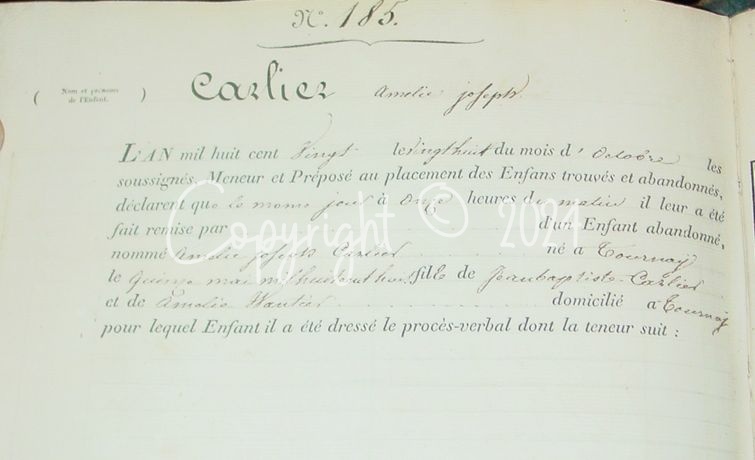 N.° 185.
( Nom et prénoms de l'Enfant. ) Carlier Amelie joseph
L'AN mil huit cent Vingt le vingthuit du mois d' Octobre les
soussignés, Meneur et Préposé au placement des Enfans trouvés et abandonnés,
déclarent que le meme jour à Onze heures du matin il leur a été
fait remise par d'un Enfant abandonné,
nommé Amelie joseph Carlier né a Tournay
le quinze mai milhuitcent fille de Jeanbaptiste Carlier
et de Amelie domicilié a Tournay
pour lequel Enfant il a été dressé le procès-verbal dont la teneur suit :
Copyright © 2024